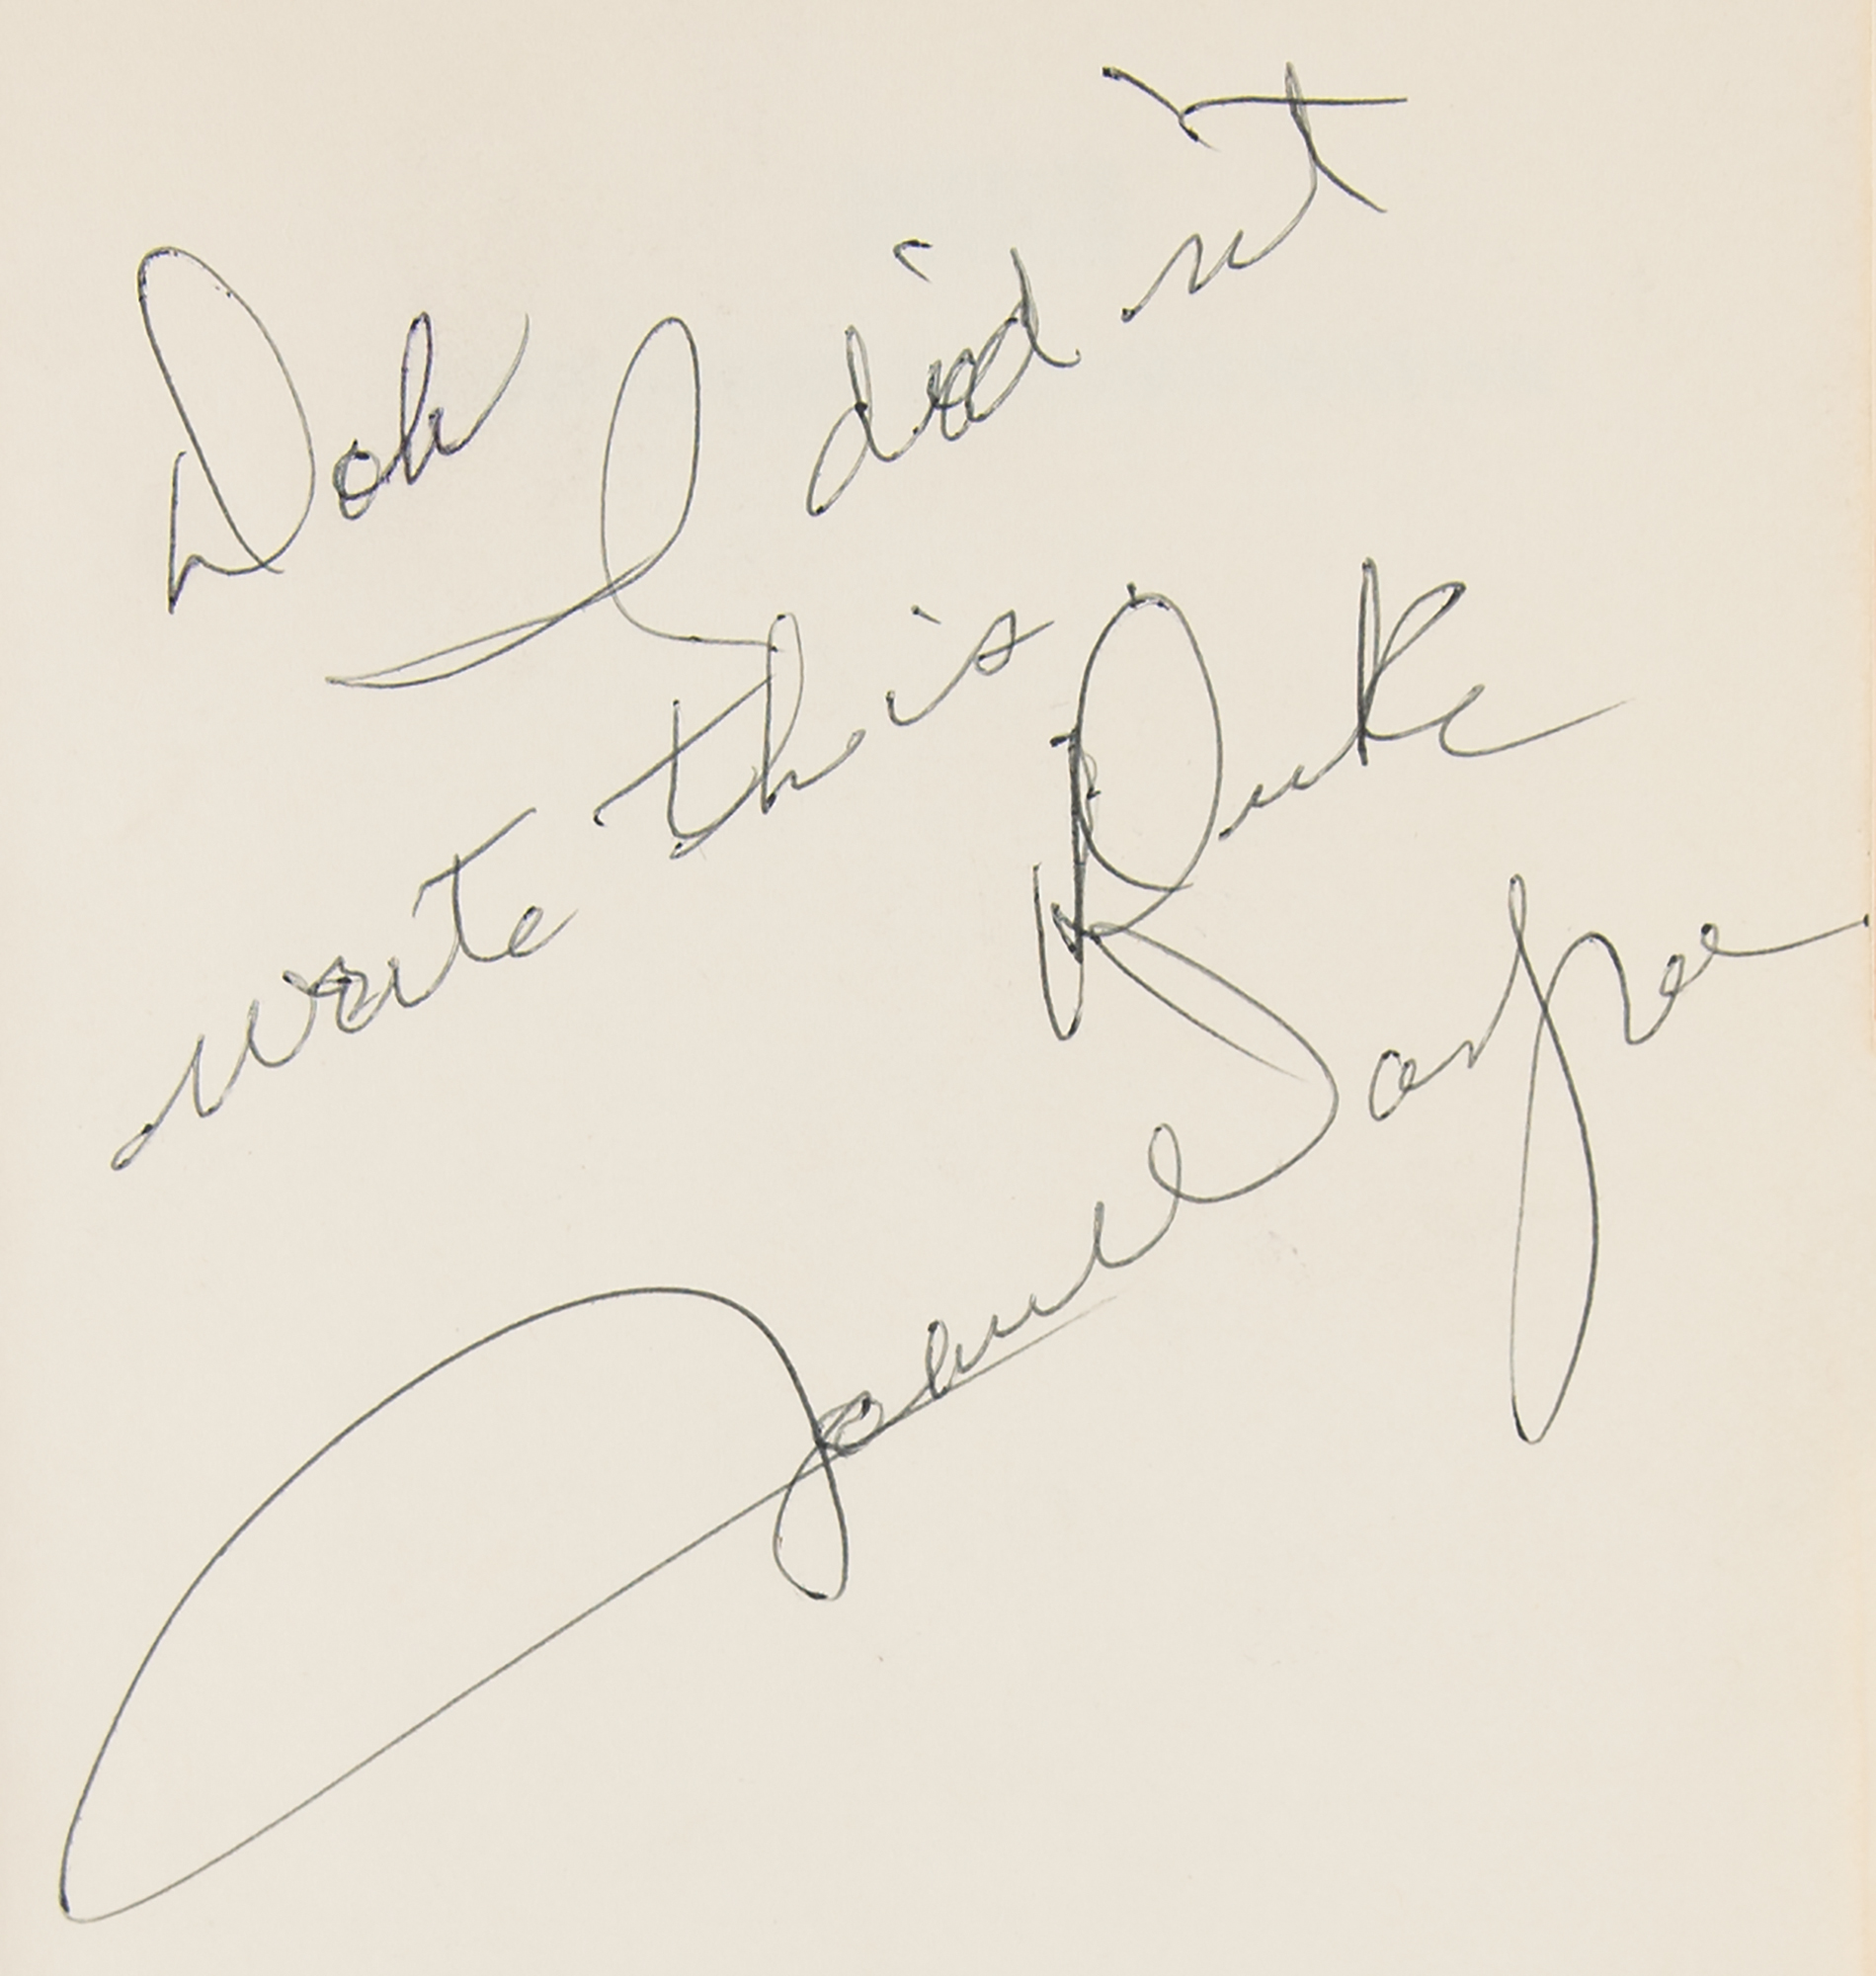 I did not
write this
Duke
John Wayne